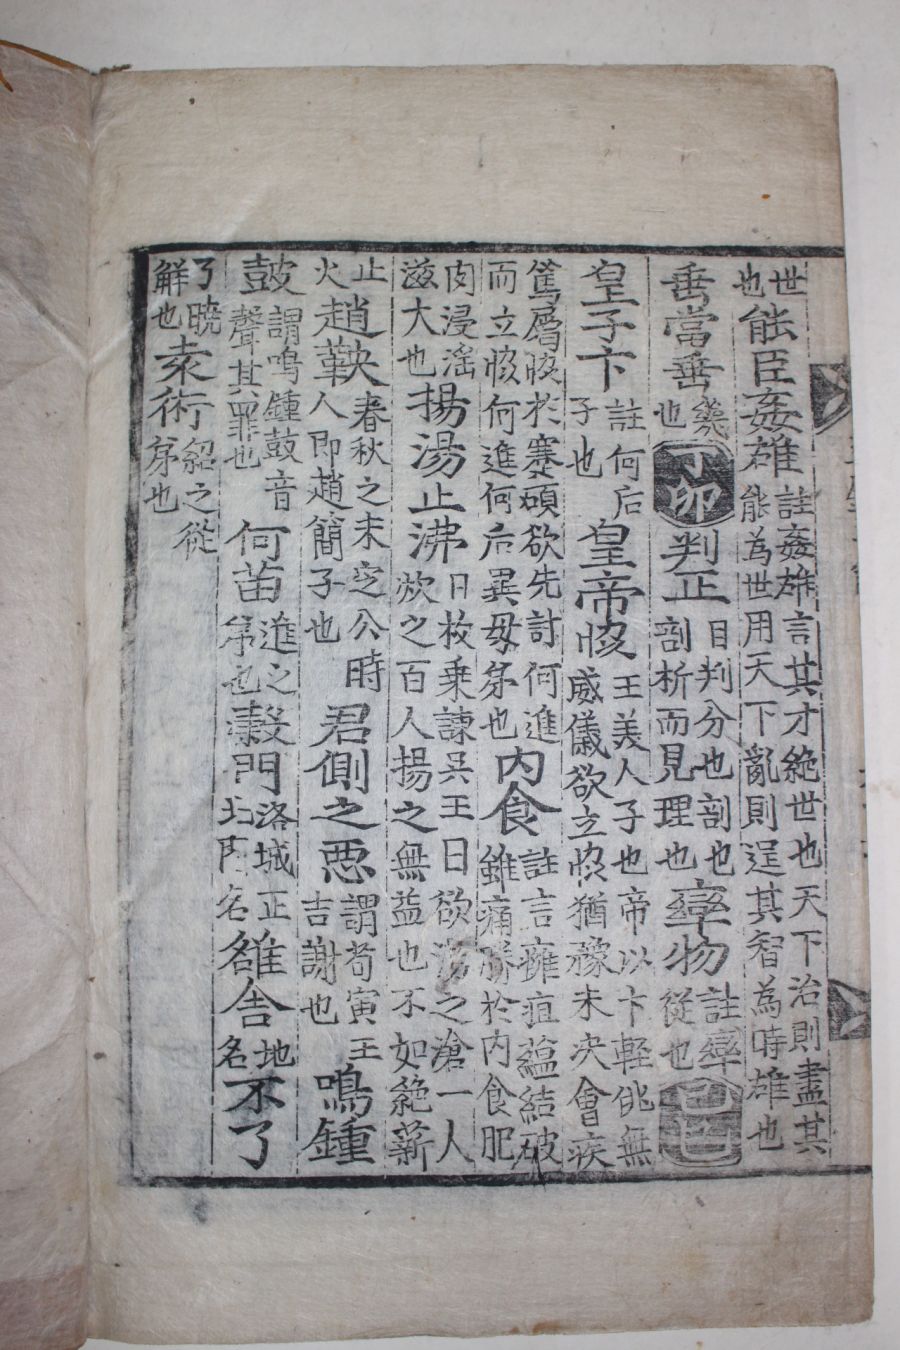 世也能臣姦雄註姦雄言其才絶世也天下治則盡其能為世用天下亂則逞其智為時雄也
垂當垂幾也丁卯判正目判分也剖也剖析而見理也率物註率從也己巳
皇子卞註何后子也皇帝恊王美人子也帝以卞輕佻無威儀欲立恊猶豫未决會疾
篤屬恊於蹇碩欲先討何進而立恊何進何后異母弟也內食註言癰疽蘊結破雖痛勝於內食肥
肉浸淫滋大也揚湯止沸目枚乘諫吳王曰欲湯之滄一人炊之百人揚之無益也不如絶薪
止火趙鞅春秋之末定公時人即趙簡子也君側之惡謂苟寅王吉謝也鳴鍾
鼓謂鳴鍾鼓音聲其罪也何苗進之弟也穀門洛城正北門名雒舍地名不了
了曉解也袁術紹之從弟也